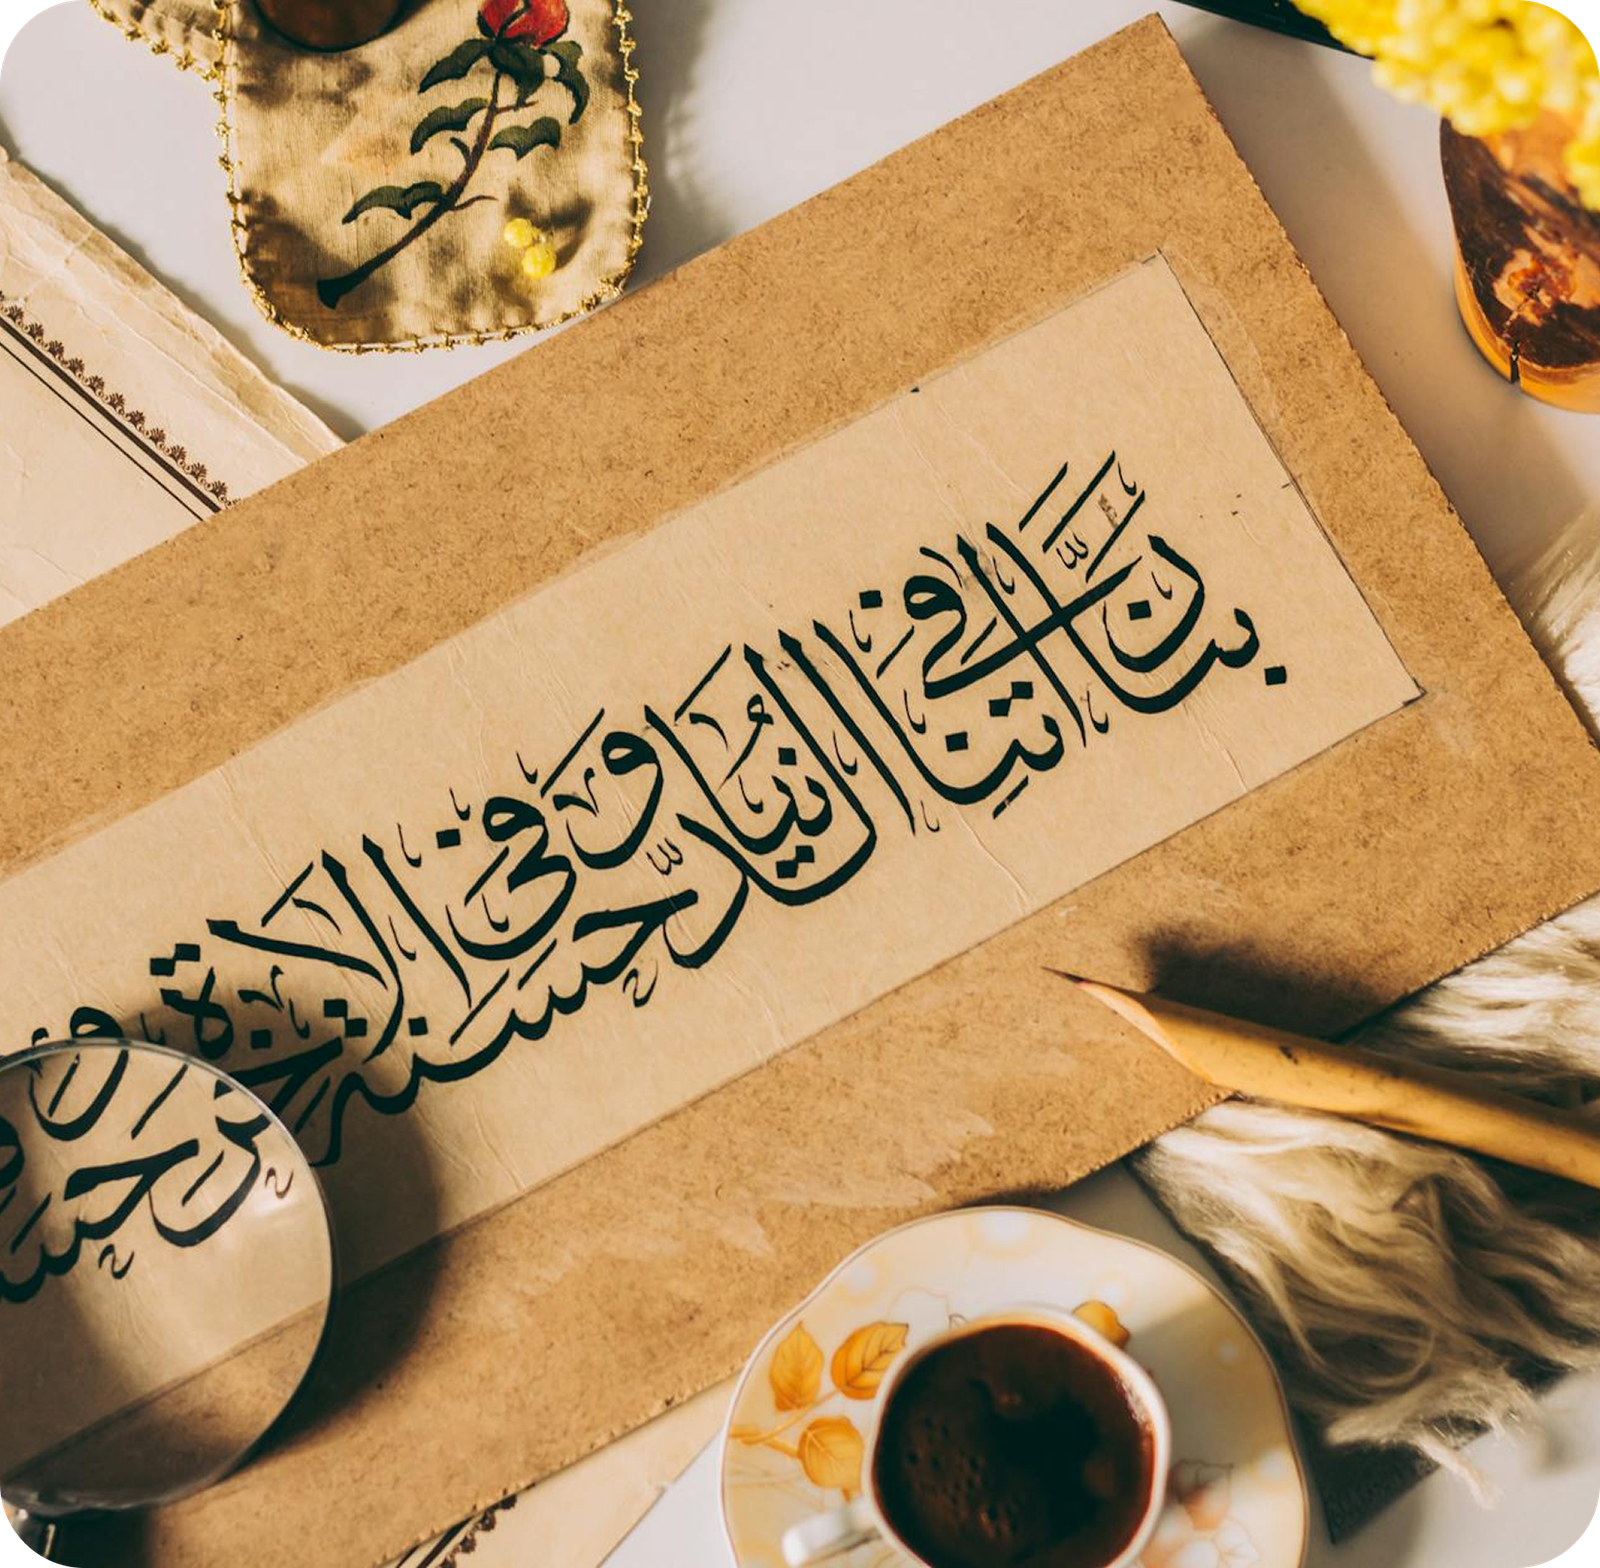 ربنا اتنا في الدنيا حسنة وفي الاخرة حسنة